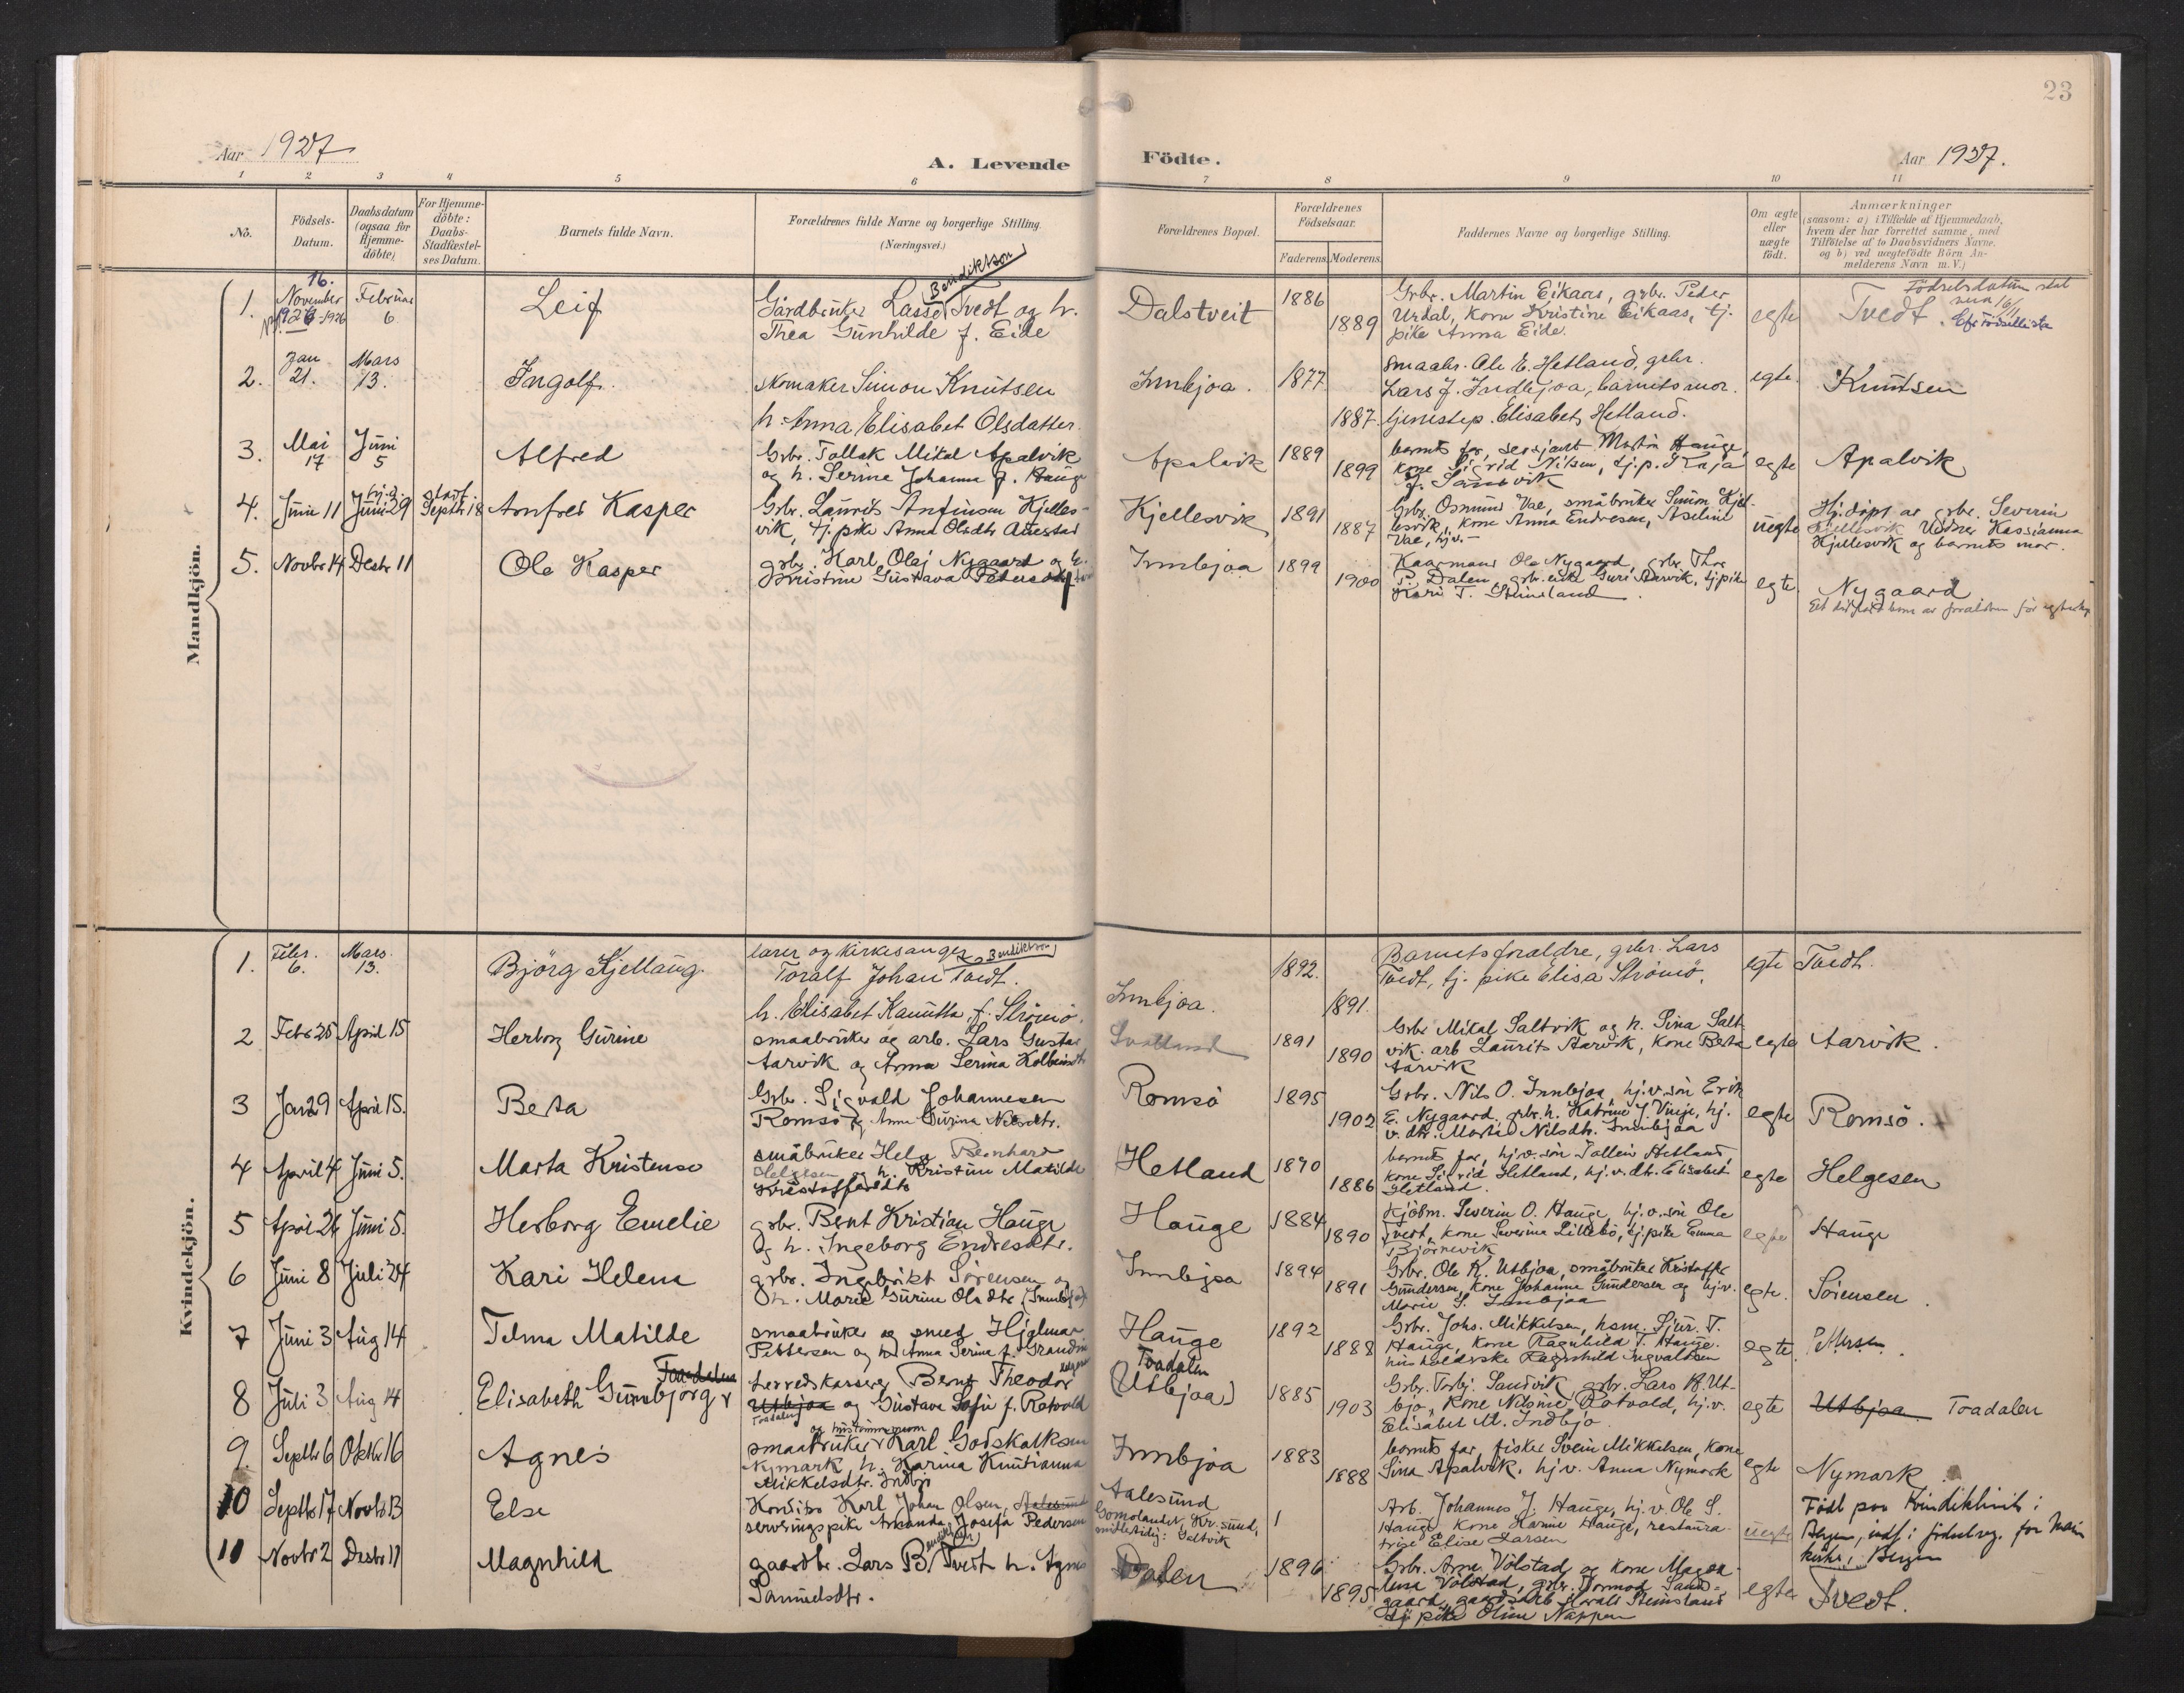 23
Aar 1927
A. Levende
Födte.
Aar 1927.
1 2 3 4 5 6 7 8 9 10 11
No.
Födsels-Datum.
Daabsdatum (ogsaa for Hjemme-döbte)
For Hjemme-döbte: Daabs-Stadfæstel-ses Datum.
Barnets fulde Navn.
Forældrenes fulde Navne og borgerlige Stilling.
(Næringsvei.)
Forældrenes Bopæl.
Forældrenes Födselsaar.
Faderens. Moderens.
Faddernes Navne og borgerlige Stilling.
Om ægte eller uægte födt.
Anmærkninger
(saasom: a) i Tilfælde af Hjemmedaab,
hvem der har forrettet samme, med
Tilföielse af to Daabsvidners Navne.
og b) ved uægtefödte Börn An-
melderens Navn m. V.)
Mandkjön.
1. November 16. 1926 Februar 6 Leif
Gårdbruker Lasse Bendiktson Tvedt og h.
Thea Gunhilde f. Eide
Dalstveit 1886 1889
Grbr. Martin Eikaas, grbr. Peder
Urdal, kone Kristine Eikaas, tj.
pike Anna Eide.
egte Tvedt.
Födselsdatum skal
være 16/11
Efr födsellista
2. Jan 21. Mars 13. Ingolf.
skomaker Simon Knutsen
h. Anna Elisabet Olsdatter.
Innbjoa. 1877 1887
Smaabr. Ole E. Hetland, grbr.
Lars J. Indbjoa, barnets mor.
tjenestep. Elisabet Hetland.
egte. Knutsen
3. Mai 17 Juni 5 Alfred
Grbr. Tollak Mikal Apalvik
og h. Serine Johanna f. Hauge
Apalvik 1889 1899
barnets far, sersjant Martin Hauge,
kone Sigrid Nilsen, tj.p.
J. Sandvik
egte Apalvik
4. Juni 11 hj.d. Juni 29 stadf. Septbr 18 Arnfred Kasper
Grbr. Laurits Anfinsen Kjelles-
vik, tj. pike Anna Olsdtr
Kjellesvik 1891 1887
Grbr. Osmund Vae, småbruker Simon Kjel-
lesvik, kone Anna Endresen, Aseline
Vae, hj.v.
uegte
Hj.döpt av grbr. Severin
Kjellesvik Vidner Kassianna
Kjellesvik og barnets mor.
5. Novbr 14 Desbr 11 Ole Kasper
grbr. Karl Olaj Nygaard og h.
Kristine Gustava
Innbjoa 1899 1900
Kaarmann Ole Nygaard, grbr. Thor
P. Dalen, grbr. enke Guri Aarvik, tj.pike
Kari T. Steinsland.
egte Nygaard
Kvindekjön.
1. Febr. 6. Mars. 13. Björg Kjellaug.
lærer og kirkesanger Bendiktson
Toralf Johan Tvedt.
h. Elisabet Kamitta f. Strömö.
Innbjoa. 1892. 1891.
Barnets foraldre, grbr. Lars
Tvedt, tj. pike Elisa Strömö.
egte Tvedt.
2 Febr 25 April 15 Herborg Gurine
smaabruker og arb. Lars Gustav
Aarvik og Anna Serina Kolbeinsdtr
Svolland 1891 1890
Grbr Mikal Saltvik og h. Sina Salt-
vik. arb Laurits Aarvik, kone Berta
Aarvik
egte Aarvik.
3 Jan 29 April 15. Berta
Grbr. Sigvald Johannesen
Romsö og Anna Gurina Nilsdtr.
Romsö 1895 1902
Grbr. Nils O. Innbjoa, hj.v. sön Erik
E. Nygaard, grbr. h. Katrine J. Vinje, hj.
v. dtr. Marta Nilsdtr. Innbjoa
egte Romsö.
4 April 4 Juni 5. Marta Kristense
småbruker Helge Bernhard
Helgesen og h. Kristine Matilde
Kristoffersdtr
Hetland 1890 1886
barnets far, hj.v. sön Tollein Hetland,
kone Sigrid Hetland, hj.v. dtr. Elisabet
Hetland.
egte Helgesen
5 April 26 Juni 5. Herborg Emelie
grbr. Bernt Kristian Hauge
og h. Ingeborg Endresdtr.
Hauge 1884 1890
Kjöbm. Severin O. Hauge, hj.v. sön Ole
Tvedt, kone Severina Lillebö, tj.pike Emma
Björnevik
egte Hauge
6 Juni 8 Juli 24 Kari Helene
grbr. Ingebrikt Sörensen og
h. Marie Gurine Olsdtr (Innbjoa)
Innbjoa 1894 1891
Grbr. Ole K. Utbjoa, småbruker Kristoffer
Gundersen, kone Johanne Gundersen og hj.v.
Marie S. Innbjoa
egte. Sörensen.
7 Juni 3 Aug 14 Telma Matilde
smaabruker og smed Hjalmar
Pettersen og h. Anna Serina f.
Hauge 1892 1888
Grbr. Johs. Mikkelsen, hsm. Sjur. T.
Hauge, kone Ragnhild T. Hauge.
husholderske Ragnhild Ingvaldsen
egte.
8 Juli 3 Aug 14 Elisabeth Gunbjorg
herredskasserer Bernt Theodor Helgesen
Utbjoa Toadalen og Gustava Sofie f. Røtvold
Toadalen (Utbjoa) 1885 1903
Grbr. Torbj. Sandvik, grbr. Lars K. Ut-
bjo, kone Nilsine Røtvold, hj.v.
Elisabet M. Indbjo.
egte Utbjoa Toadalen
9. Septbr 6 Oktbr 16 Agnes
smaabruker og Karl Godskalksen
Nymark h. Karina Knutianna
Mikkelsdtr. Indbjo
Innbjoa 1883 1888
barnets far, fisker Svein Mikkelsen, kone
Sina Apalvik, hj.v. Anna Nymark
egte Nymark.
10 Septbr 17 Novbr 13 Else
Konditor Karl Johan Olsen, Aalesund
servringspike Amanda Josefa Pedersen
Aalesund
Gomolandet, Kr.sund,
midlertidig: Saltvik
Arb. Johannes J. Hauge, hj.v. Ole S.
Hauge, kone Karine Hauge, restaura-
trise Elise Larsen
uegte
Födt paa Kvindeklinik i
Bergen, indf. i födselreg. for
kirke, Bergen
11 Novbr 2 Desbr 11 Magnhild
gaardbr. Lars B. Bendiktson Tvedt h. Agnes
Samuelsdtr.
Dalen 1896 1895
Grbr. Arne Volstad og kone Magda-
lena Volstad, grbr. Tormod Sand-
gaard, gaardsarb. Harald Steinsland
tj pike Oline Nappen
egte Tvedt.